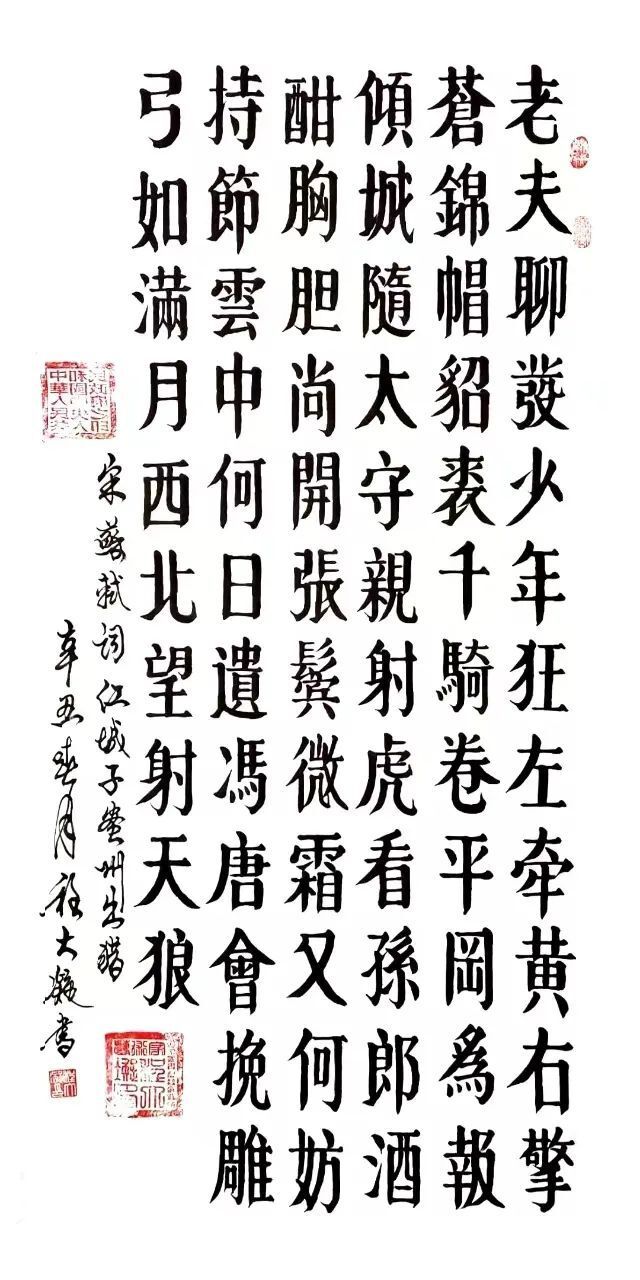 老夫聊發少年狂左牽黄右擎
蒼錦帽貂裘千騎卷平岡爲報
傾城隨太守親射虎看孫郎酒
酣胸胆尚開張鬢微霜又何妨
持節雲中何日遺馮唐會挽雕
弓如滿月西北望射天狼
宋蘇軾词江城子密州出猎
辛丑春月程大書